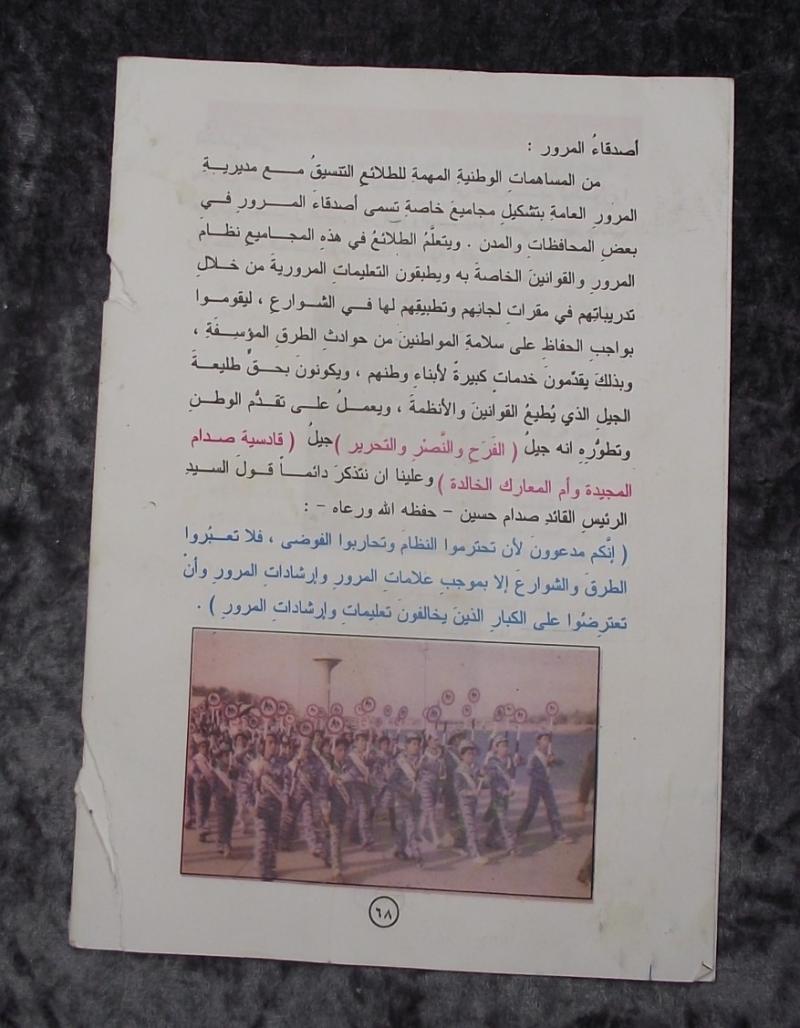 أصدقاءُ المرور :
من المساهماتِ الوطنيةِ المهمةِ للطلائعِ التنسيقُ مـع مديريـةِ
المرورِ العامةِ بتشكيلِ مجاميعَ خاصةٍ تسمى أصدقاءَ المـرورِ فـي
بعضِ المحافظاتِ والمدن . ويتعلَّمُ الطلائعُ في هذهِ المجـاميعِ نظـامَ
المرورِ والقوانينَ الخاصةَ به ويطبقون التعليماتِ المروريةَ من خـلالِ
تدريباتِهم في مقراتِ لجانِهم وتطبيقِهم لها فـي الشـوارعِ ، ليقومـوا
بواجبِ الحفاظِ على سلامةِ المواطنينَ من حوادثِ الطرقِ المؤسِـفَةِ ،
وبذلكَ يقدِّمونَ خدماتٍ كبيرةً لأبناءِ وطنهم ، ويكونونَ بحـقٍّ طليعـةَ
الجيلِ الذي يُطيعُ القوانينَ والأنظمةَ ، ويعمـلُ علـى تقـدُّمِ الوطـنِ
وتطوُّرِهِ انه جيلُ ( الفَرَحِ والنَّصْرِ والتحرير ) جيلُ ( قادسية صـدام
المجيدة وأم المعارك الخالدة ) وعلينا ان نتذكرَ دائمـاً قـولَ السـيدِ
الرئيسِ القائدِ صدام حسين – حفظه الله ورعاه – :
( إنَّكم مدعوونَ لأن تحترموا النظامَ وتحاربوا الفوضى ، فلا تعـبُروا
الطرقَ والشوارعَ إلا بموجبِ علاماتِ المرورِ وإرشاداتِ المرورِ وأنْ
تعترِضُوا على الكبارِ الذينَ يخالفونَ تعليماتِ وإرشاداتِ المرورِ ) .
٦٨